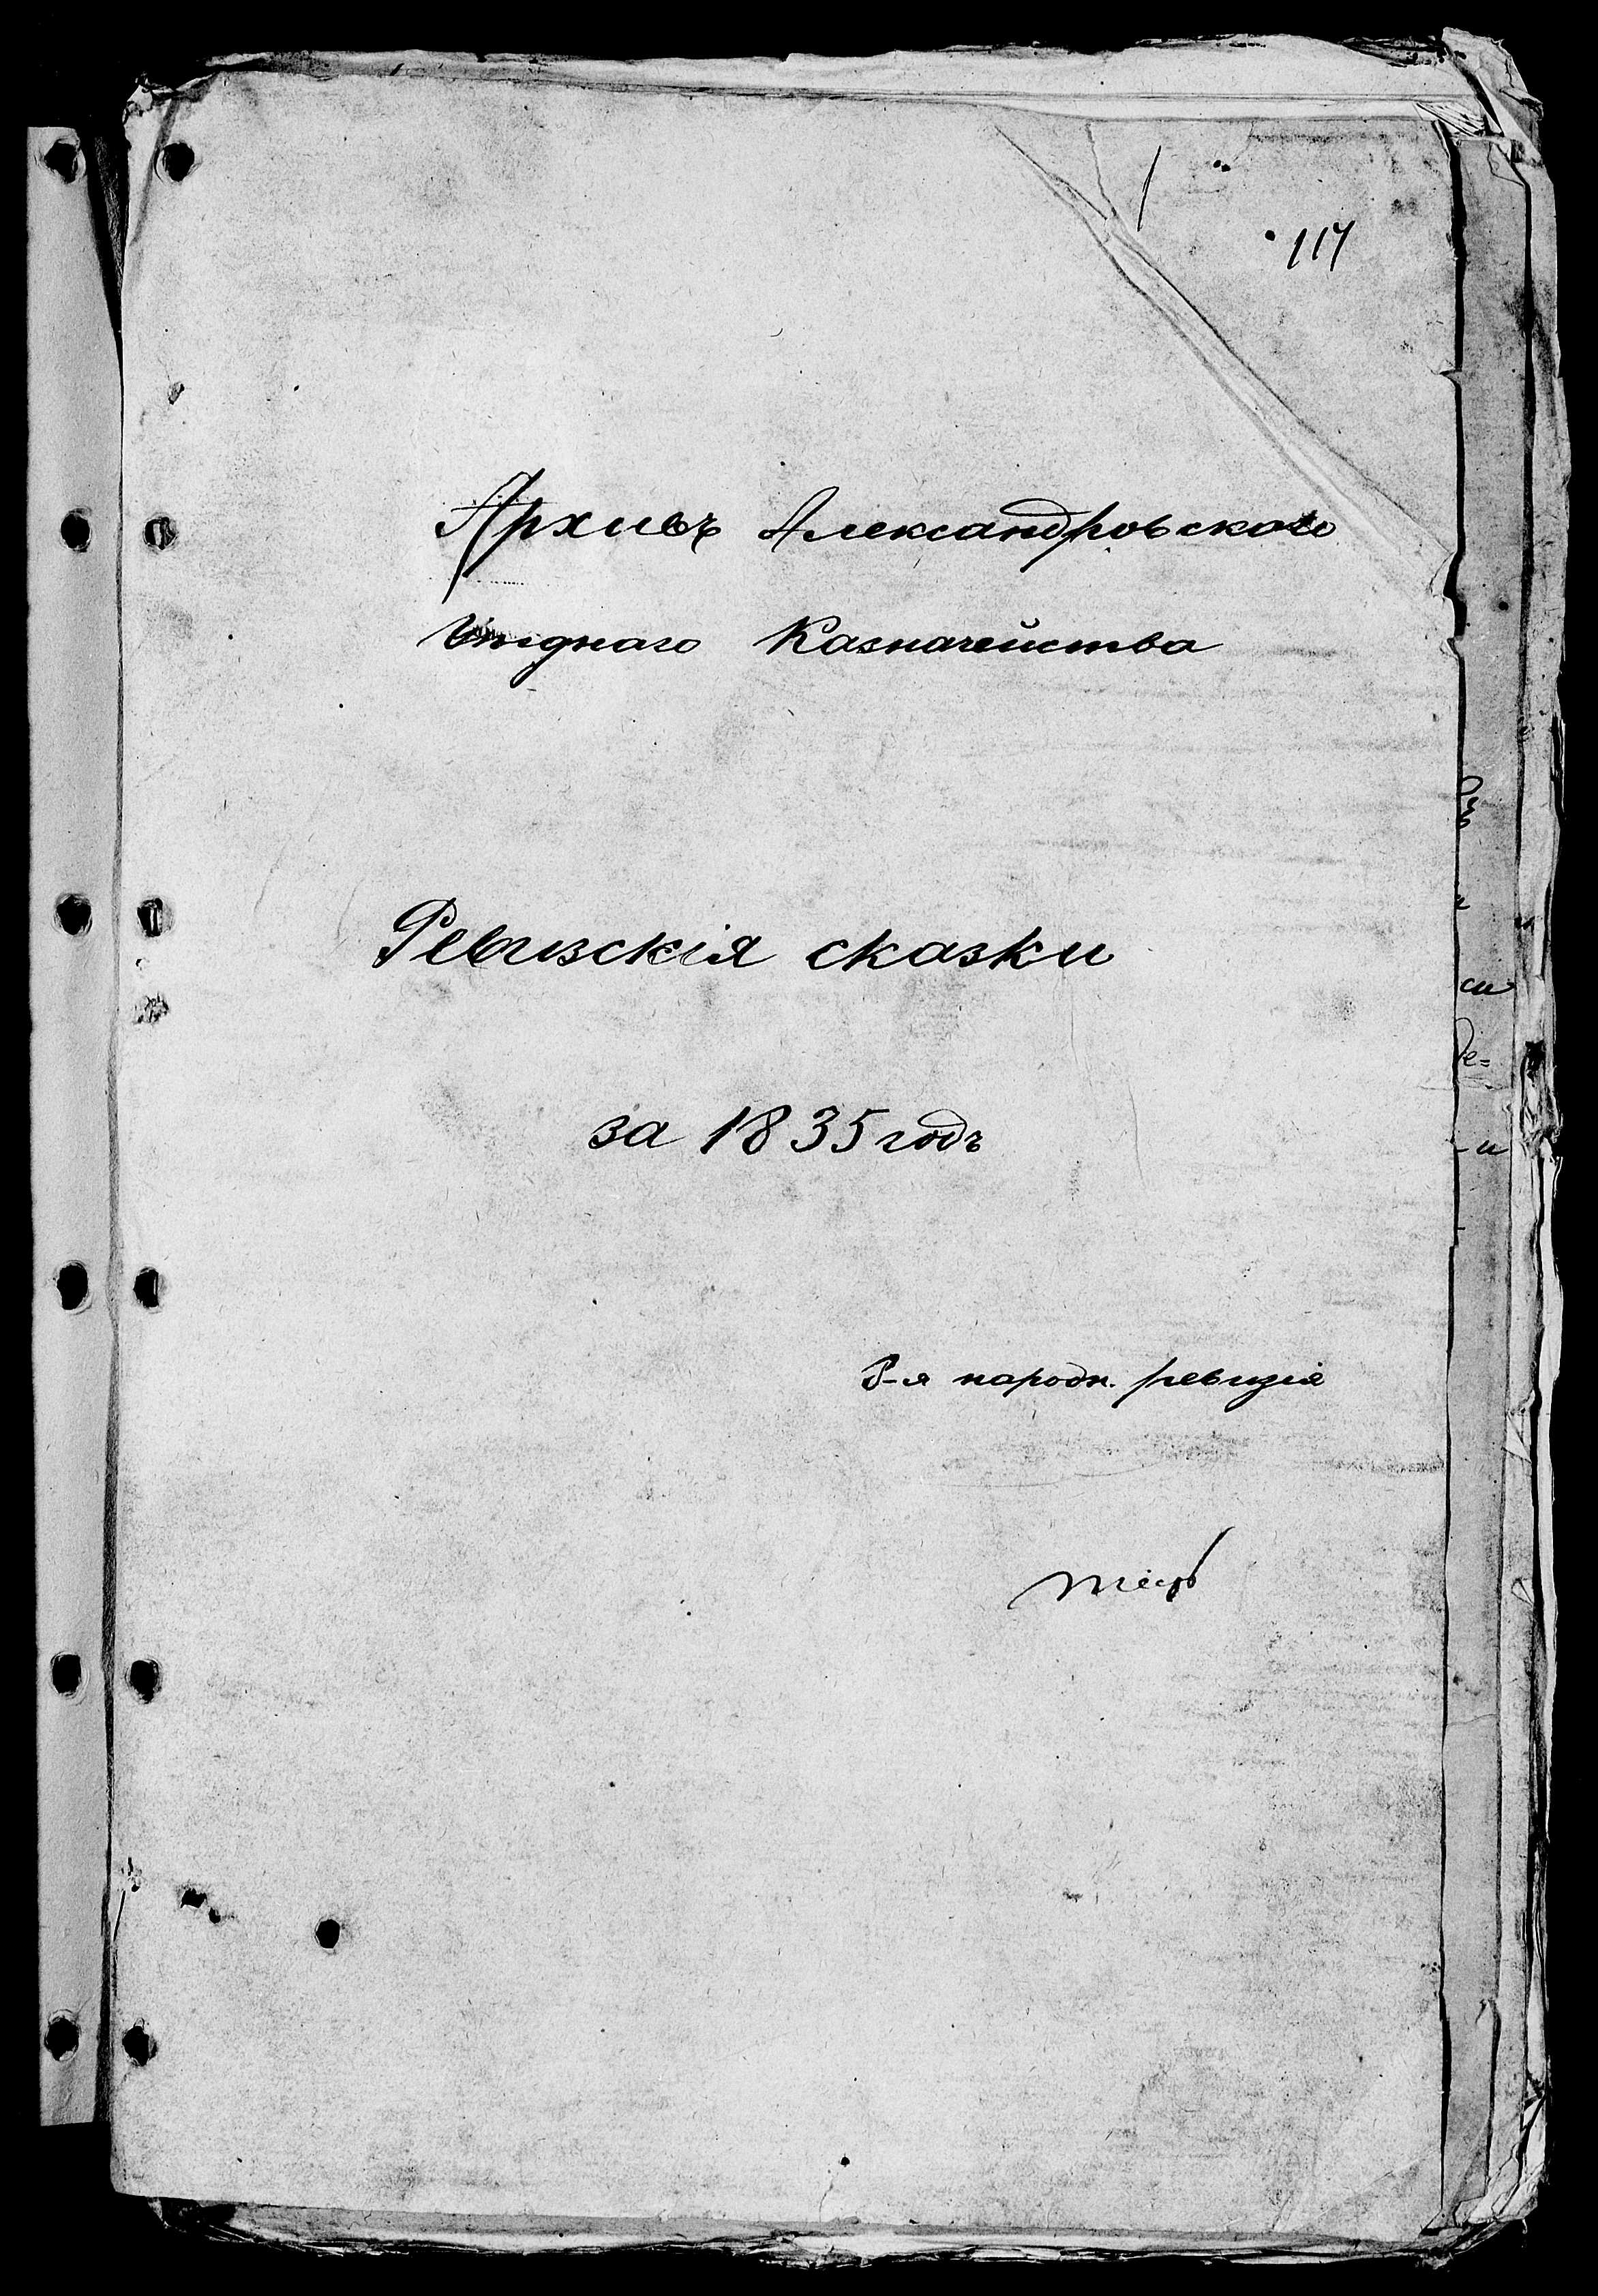 117
Архивъ Александровскаго
Уѣзднаго Казначейства
Ревизскія сказки
за 1835 годъ
8-я народн. ревизія